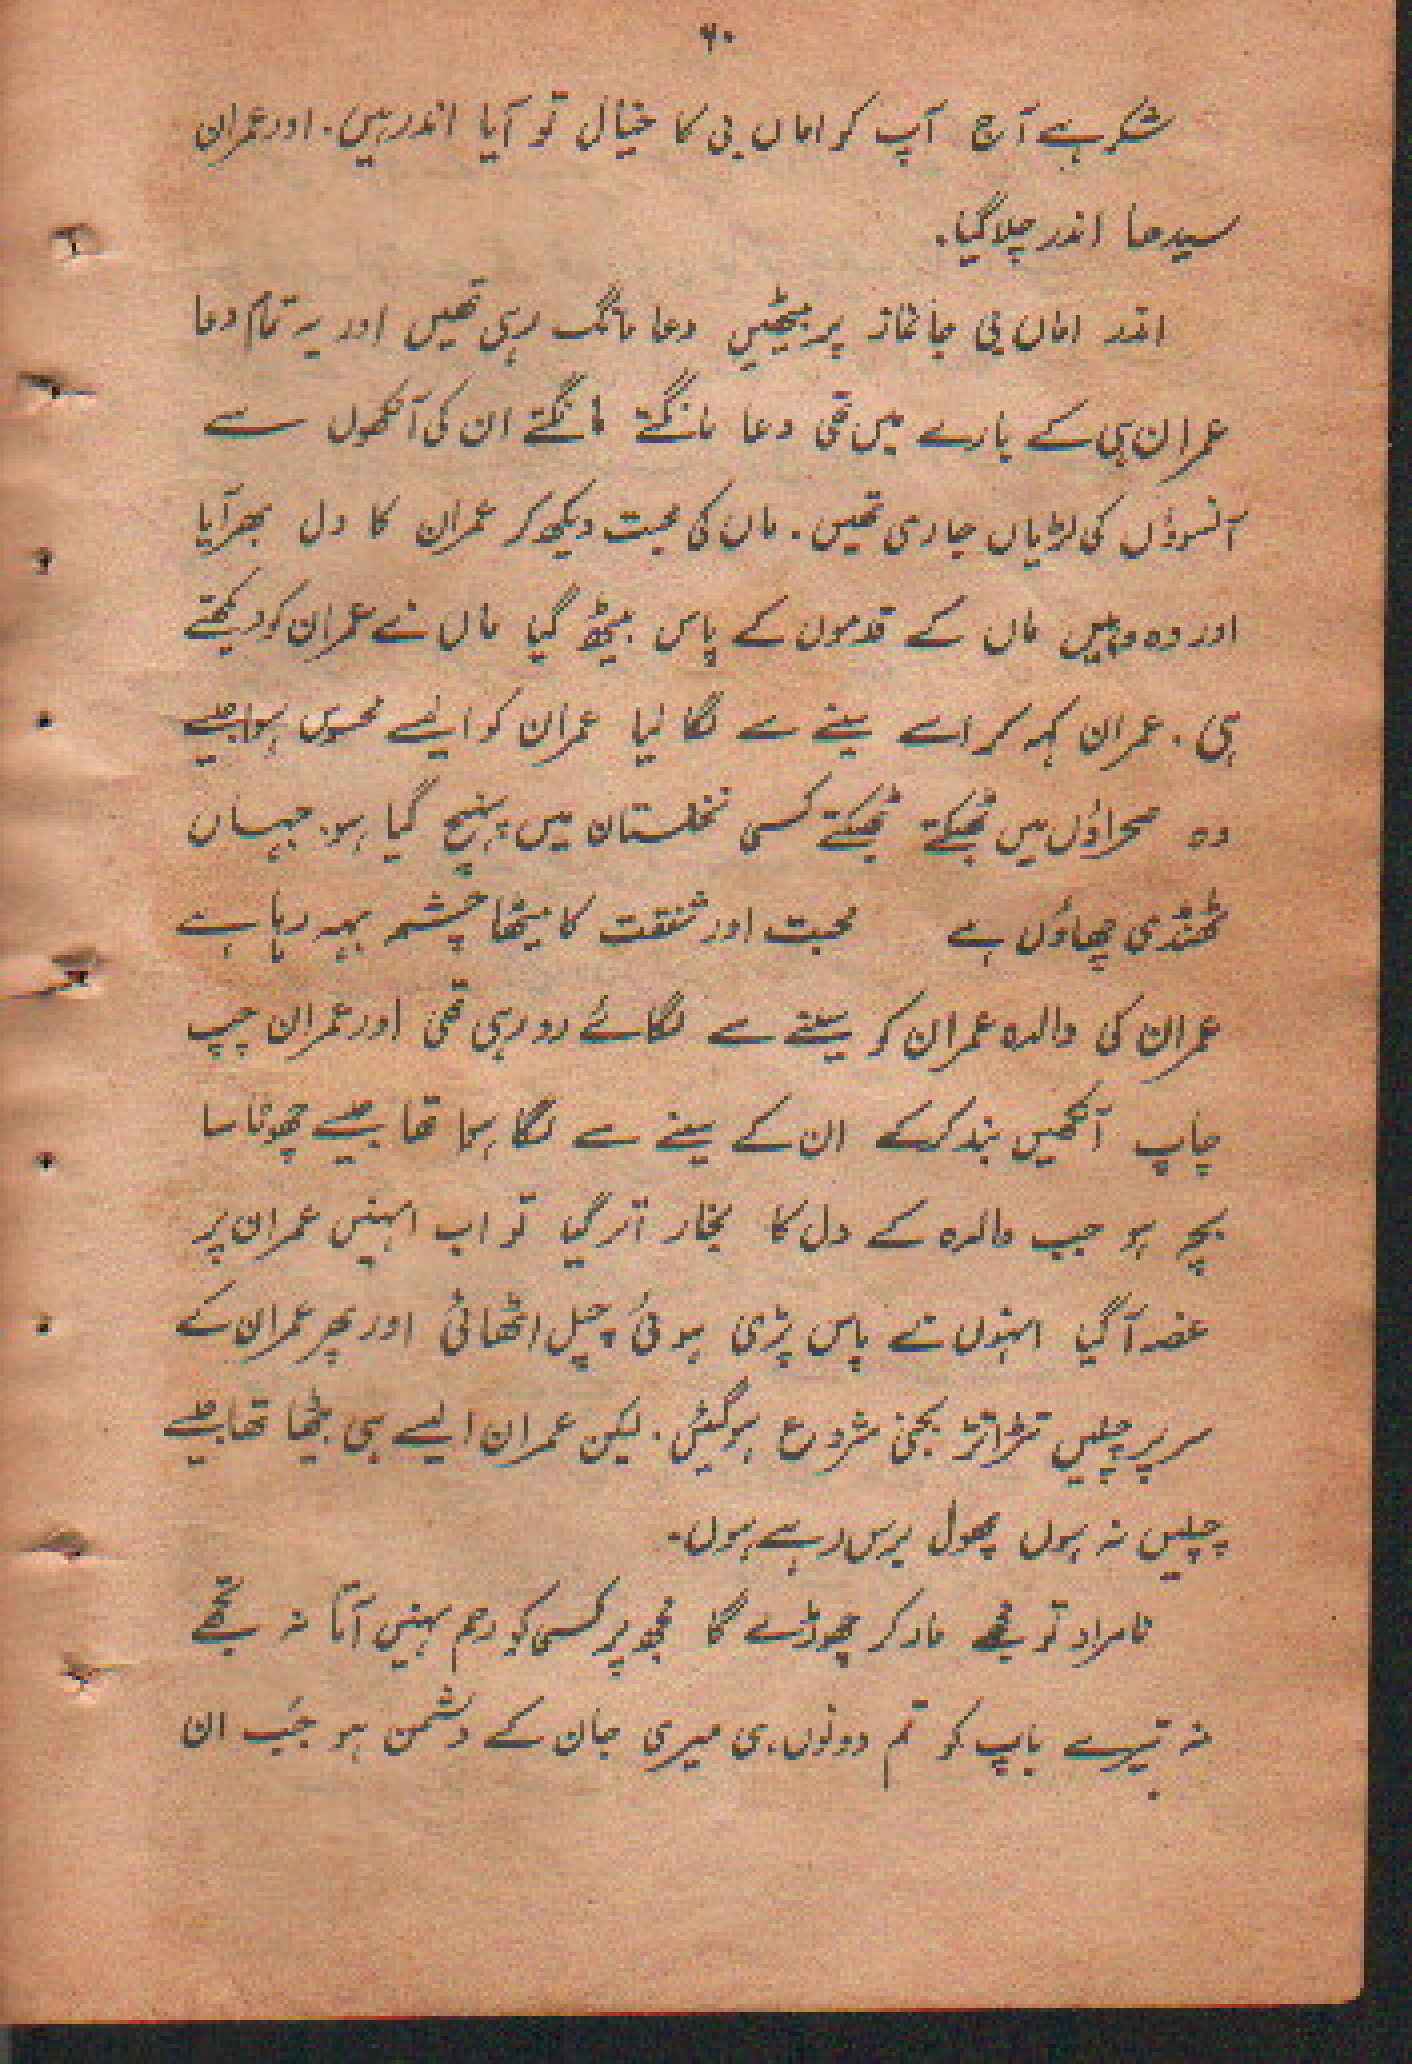 ۶۰
شکر ہے آج آپ کو اماں بی کا خیال تو آیا اندر ہیں۔ اور عمران
سیدھا اندر چلا گیا۔
اندر اماں بی جانماز پر بیٹھیں دعا مانگ رہی تھیں اور یہ تمام دعا
عمران ہی کے بارے میں تھی دعا مانگتے مانگتے ان کی آنکھوں سے
آنسوؤں کی لڑیاں جاری تھیں۔ ماں کی محبت دیکھ کر عمران کا دل بھر آیا
اور وہ وہیں ماں کے قدموں کے پاس بیٹھ گیا ماں نے عمران کو دیکھتے
ہی۔ عمران کہہ کر اسے سینے سے لگا لیا عمران کو ایسے محسوس ہوا جیسے
وہ صحراؤں میں بھٹکتے بھٹکتے کسی نخلستان میں پہنچ گیا ہو۔ جہاں
ٹھنڈی چھاؤں ہے محبت اور شفقت کا میٹھا چشمہ بہہ رہا ہے
عمران کی والدہ عمران کو سینے سے لگائے رو رہی تھی اور عمران چپ
چاپ آنکھیں بند کرکے ان کے سینے سے لگا ہوا تھا جیسے چھوٹا سا
بچہ ہو جب والدہ کے دل کا بخار اتر گیا تو اب انہیں عمران پر
غصہ آ گیا انہوں نے پاس پڑی ہوئی چپل اٹھائی اور پھر عمران کے
سر پر چپلیں تڑاتڑ بجنی شروع ہوگئیں۔ لیکن عمران ایسے ہی بیٹھا تھا جیسے
چپلیں نہ ہوں پھول برس رہے ہوں۔
نامراد تو مجھے مار کر چھوڑے گا مجھ پر کسی کو رحم نہیں آتا نہ تجھے
نہ تیرے باپ کو تم دونوں ہی میری جان کے دشمن ہو جب ان